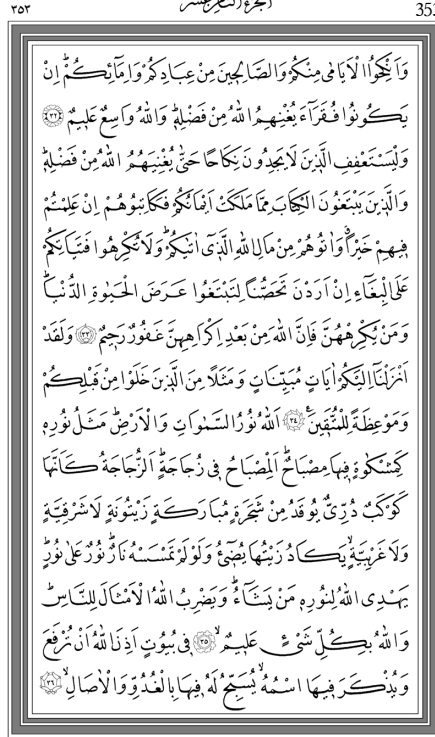 ٣٥٣ الجزء الثامن عشر 353
وَاَنْكِحُوا الْاَيَامٰى مِنْكُمْ وَالصَّالِحٖينَ مِنْ عِبَادِكُمْ وَاِمَٓائِكُمْؕ اِنْ
يَكُونُوا فُقَرَٓاءَ يُغْنِهِمُ اللّٰهُ مِنْ فَضْلِهٖؕ وَاللّٰهُ وَاسِعٌ عَلٖيمٌ ﴿٣٢﴾
وَلْيَسْتَعْفِفِ الَّذٖينَ لَا يَجِدُونَ نِكَاحًا حَتّٰى يُغْنِيَهُمُ اللّٰهُ مِنْ فَضْلِهٖؕ
وَالَّذٖينَ يَبْتَغُونَ الْكِتَابَ مِمَّا مَلَكَتْ اَيْمَانُكُمْ فَكَاتِبُوهُمْ اِنْ عَلِمْتُمْ
فٖيهِمْ خَيْرًاۗ وَاٰتُوهُمْ مِنْ مَالِ اللّٰهِ الَّذٖٓى اٰتٰيكُمْؕ وَلَا تُكْرِهُوا فَتَيَاتِكُمْ
عَلَى الْبِغَٓاءِ اِنْ اَرَدْنَ تَحَصُّنًا لِتَبْتَغُوا عَرَضَ الْحَيٰوةِ الدُّنْيَاؕ
وَمَنْ يُكْرِهْهُنَّ فَاِنَّ اللّٰهَ مِنْ بَعْدِ اِكْرَاهِهِنَّ غَفُورٌ رَحٖيمٌ ﴿٣٣﴾ وَلَقَدْ
اَنْزَلْنَٓا اِلَيْكُمْ اٰيَاتٍ مُبَيِّنَاتٍ وَمَثَلًا مِنَ الَّذٖينَ خَلَوْا مِنْ قَبْلِكُمْ
وَمَوْعِظَةً لِلْمُتَّقٖينَ ﴿٣٤﴾ اَللّٰهُ نُورُ السَّمٰوَاتِ وَالْاَرْضِؕ مَثَلُ نُورِهٖ
كَمِشْكٰوةٍ فٖيهَا مِصْبَاحٌؕ اَلْمِصْبَاحُ فٖى زُجَاجَةٍؕ اَلزُّجَاجَةُ كَاَنَّهَا
كَوْكَبٌ دُرِّىٌّ يُوقَدُ مِنْ شَجَرَةٍ مُبَارَكَةٍ زَيْتُونَةٍ لَا شَرْقِيَّةٍ
وَلَا غَرْبِيَّةٍۙ يَكَادُ زَيْتُهَا يُضٖٓىءُ وَلَوْ لَمْ تَمْسَسْهُ نَارٌؕ نُورٌ عَلٰى نُورٍؕ
يَهْدِى اللّٰهُ لِنُورِهٖ مَنْ يَشَٓاءُؕ وَيَضْرِبُ اللّٰهُ الْاَمْثَالَ لِلنَّاسِؕ
وَاللّٰهُ بِكُلِّ شَىْءٍ عَلٖيمٌۙ ﴿٣٥﴾ فٖى بُيُوتٍ اَذِنَ اللّٰهُ اَنْ تُرْفَعَ
وَيُذْكَرَ فٖيهَا اسْمُهُۙ يُسَبِّحُ لَهُ فٖيهَا بِالْغُدُوِّ وَالْاٰصَالِۙ ﴿٣٦﴾